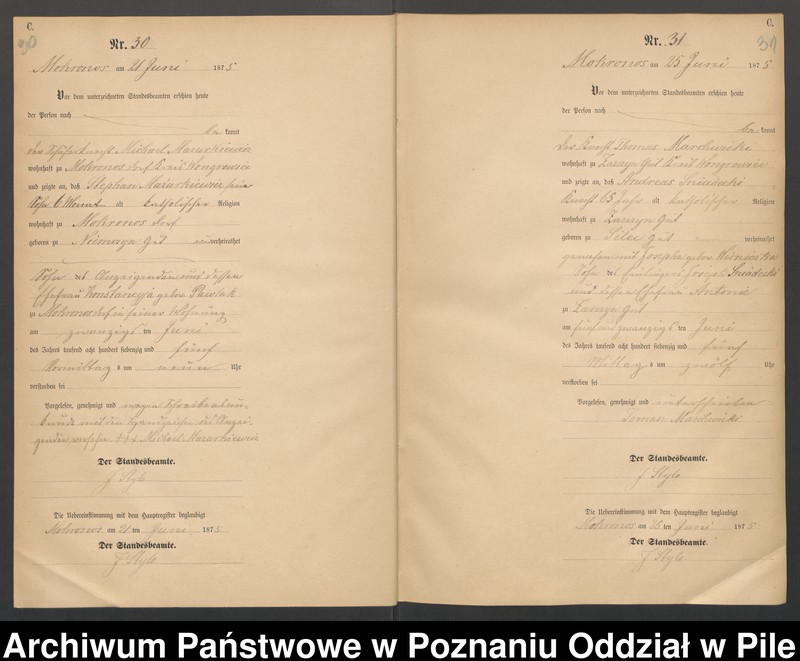 C.
30
Nr. 30
Mokronos am 21 Juni 1875
Vor dem unterzeichneten Standesbeamten erschien heute
der Person nach
be kannt
Michael Mazurkiewicz
wohnhaft zu Mokronos dorf Kreis Wongrowiec
und zeigte an, daß Stephan Mazurkiewicz sein
Sohn 6 Monat alt katholischer Religion
wohnhaft zu Mokronos dorf
geboren zu Gut unverheirathet
Sohn des Anzeigenden und dessen
Ehefrau Konstancyja geborn Pawlak
zu Mokronos dorf in seiner Wohnung
am zwanzigs ten Juni
des Jahres tausend acht hundert siebenzig und fünf
Vormittag s um neun Uhr
verstorben sei
Vorgelesen, genehmigt und wegen Schreibensun-
kunde mit den Handzeichen des Anzei-
genden versehen +++ Michael Mazurkiewicz
Der Standesbeamte.
J. Stylo
Die Uebereinstimmung mit dem Hauptregister beglaubigt
Mokronos am 21 ten Juni 1875
Der Standesbeamte.
J. Stylo
C.
31
Nr. 31
Mokronos am 25 Juni 1875
Vor dem unterzeichneten Standesbeamten erschien heute
der Person nach
be kannt
der Knecht Thomas Marchwicki
wohnhaft zu Zarczyn Gut Kreis Wongrowiec
und zeigte an, daß Andreas Sniadecki
Knecht 65 Jahr alt katholischer Religion
wohnhaft zu Zarczyn Gut
geboren zu Gut verheirathet
gewesen mit Josepha geborn
Sohn des Joseph Sniadecki
und dessen Ehefrau Antonie
zu Zarczyn Gut
am fünfundzwanzigs ten Juni
des Jahres tausend acht hundert siebenzig und fünf
Mittag s um zwölf Uhr
verstorben sei
Vorgelesen, genehmigt und unterschrieben
Tomasz Marchwicki
Der Standesbeamte.
J. Stylo
Die Uebereinstimmung mit dem Hauptregister beglaubigt
Mokronos am 25 ten Juni 1875
Der Standesbeamte.
J. Stylo
Archiwum Państwowe w Poznaniu Oddział w Pile